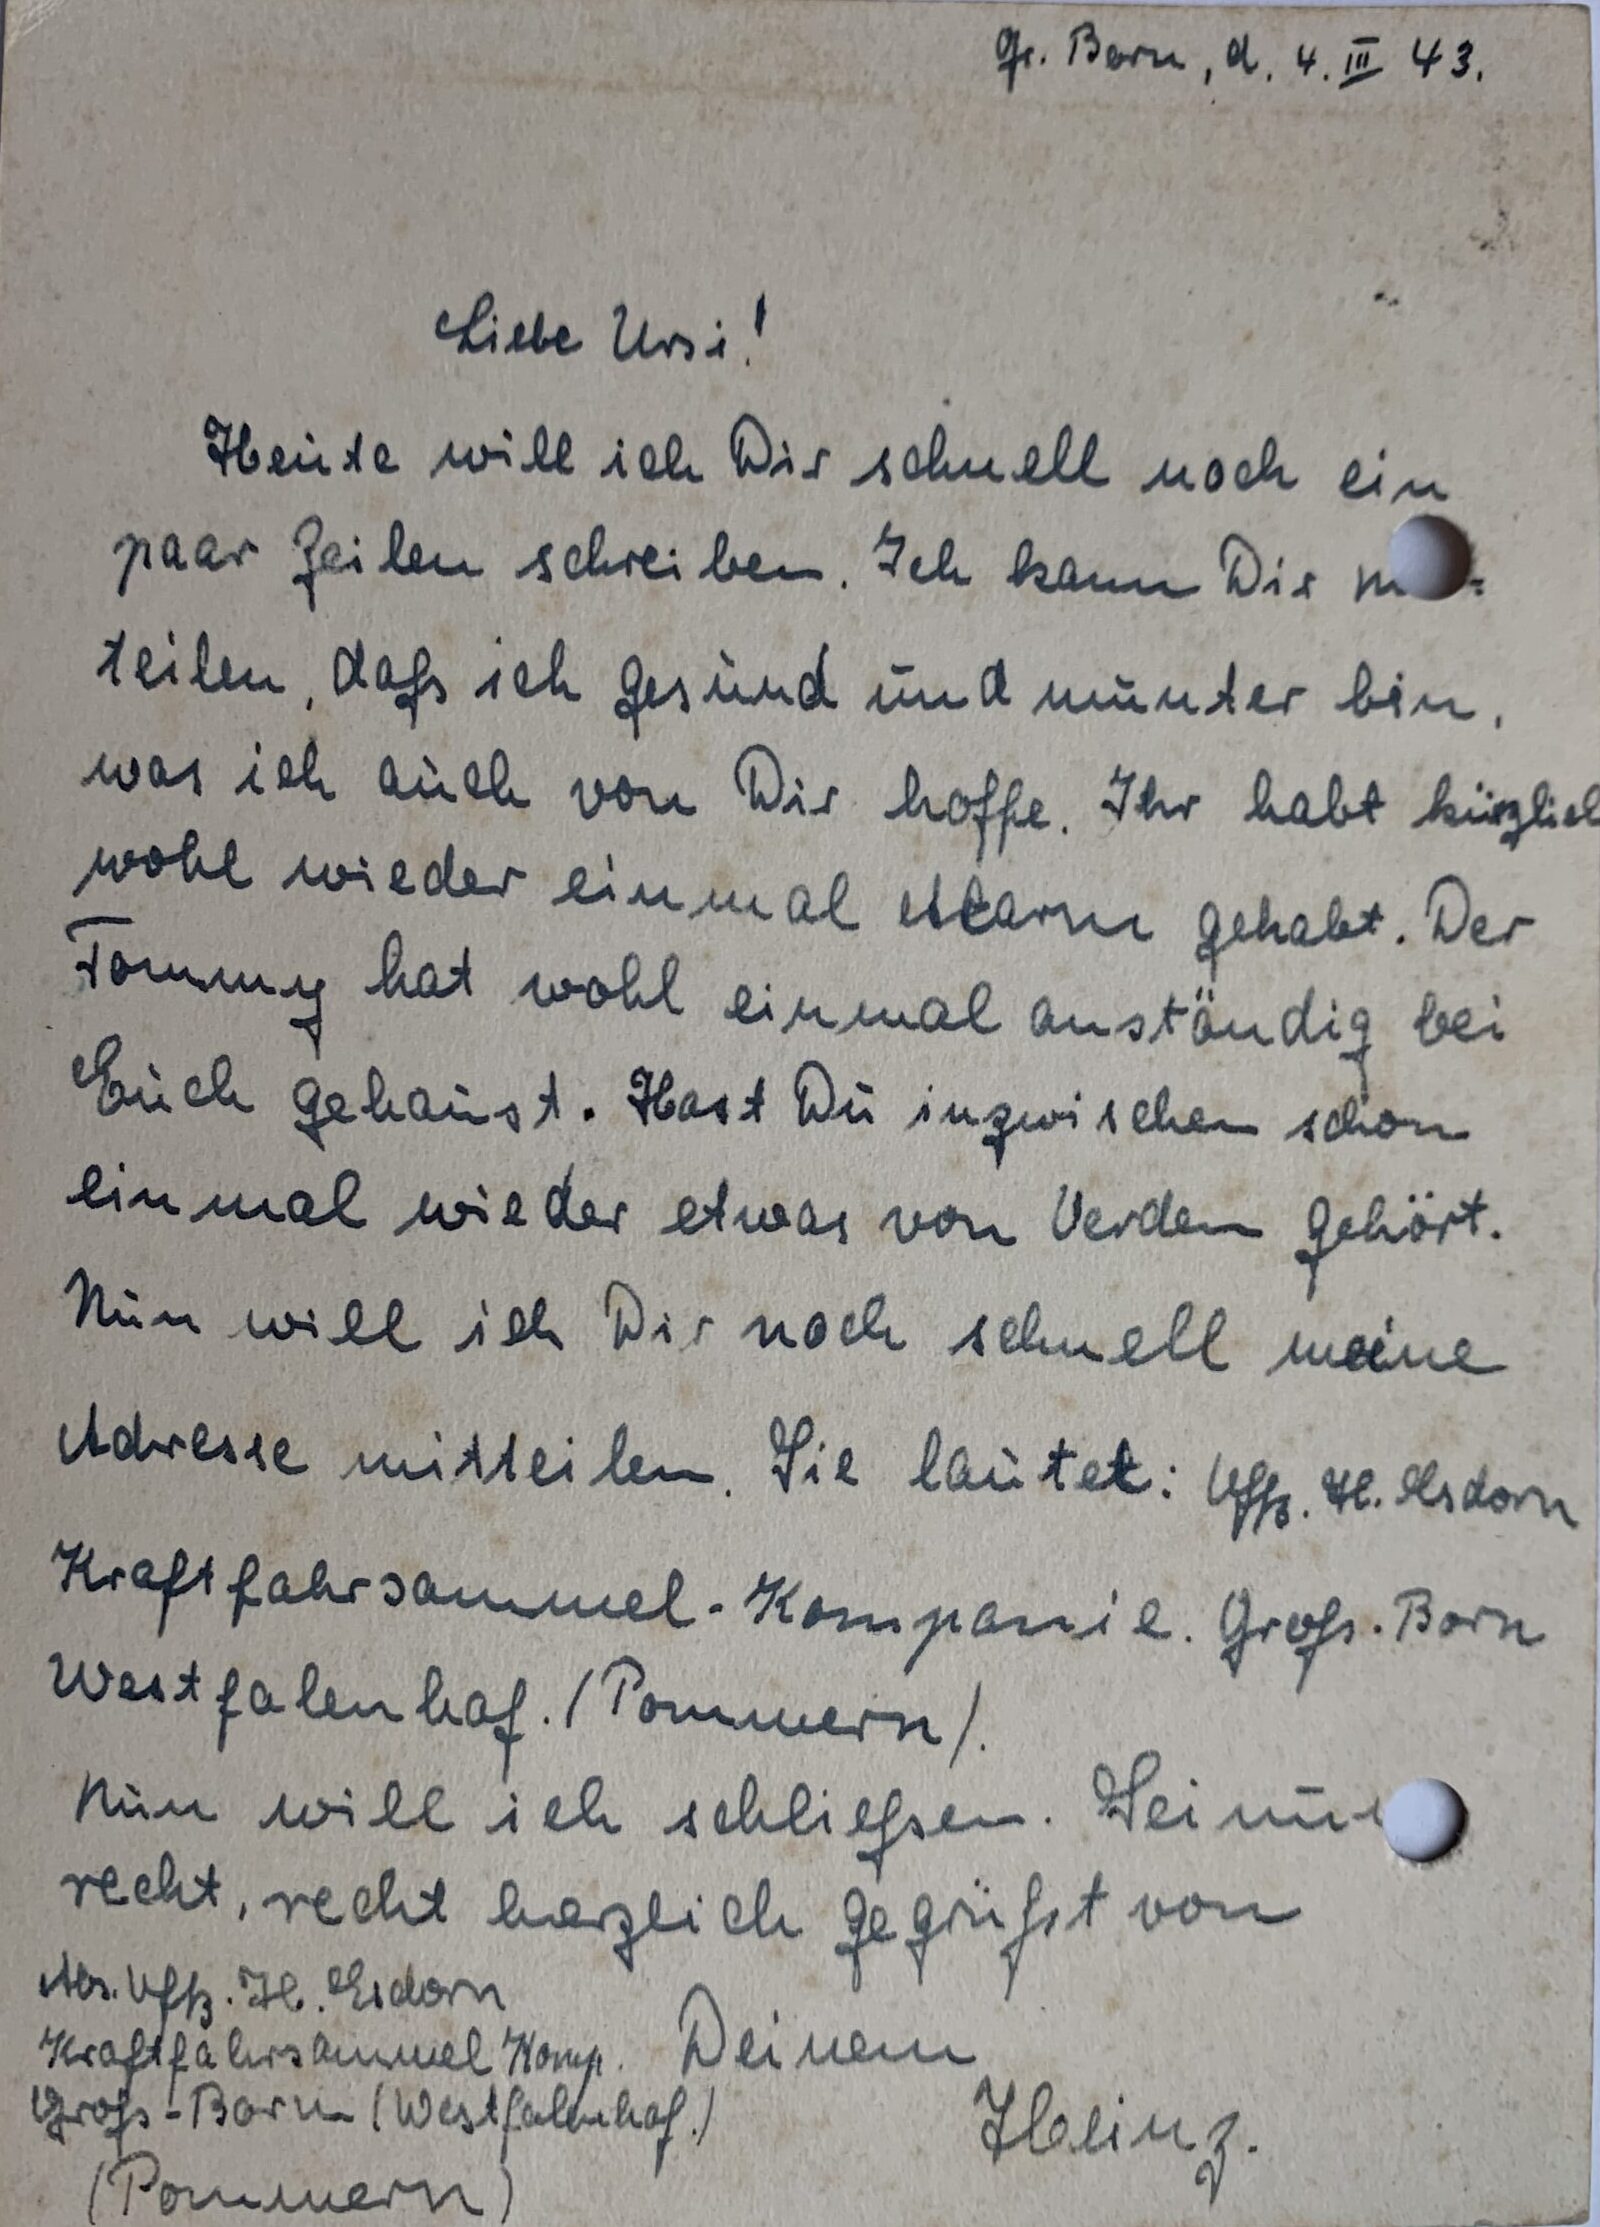 Gr. Born, d. 4. III 43.
Liebe Ursi!
Heute will ich Dir schnell noch ein
paar Zeilen schreiben. Ich kann Dir
teilen, daß ich gesund und munter bin,
was ich auch von Dir hoffe. Ihr habt kürzlich
wohl wieder einmal Alarm gehabt. Der
Tommy hat wohl einmal anständig bei
Euch gehaust. Hast Du inzwischen schon
einmal wieder etwas von Verden gehört.
Nun will ich Dir noch schnell meine
Adresse mitteilen. Sie lautet: Uffz. H. Esdorn
Kraftfahrsammel-Kompanie. Groß-Born
Westfalenhof. (Pommern).
Nun will ich schließen. Sei
recht, recht herzlich gegrüßt von
Deinem
Heinz.
Abs. Uffz. H. Esdorn
Kraftfahrsammel Komp.
Groß-Born (Westfalenhof.)
(Pommern)